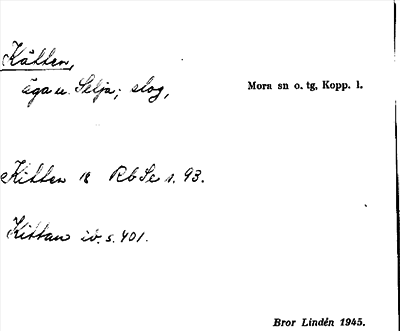 Kätten,
äga u. Selja; slog,
Mora sn o. tg, Kopp. l.
Kitten RbSe s. 93.
Kittan ib. s. 401.
Bror Lindén 1945.